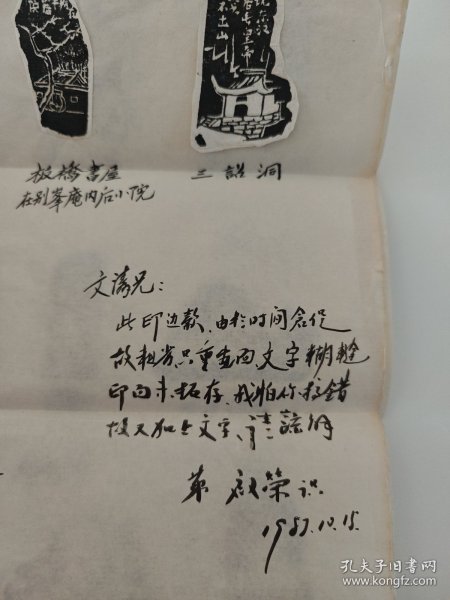 板橋書屋
在别峯庵内后小院
三詔洞
文涛兄：
此印边款，由於时间仓促
故粗劣只重画面文字糊
印面未拓存，我怕你
故又加上文字、请諒解
弟 啟榮识
1987.10.15.
孔夫子旧书网
www.kongfz.com